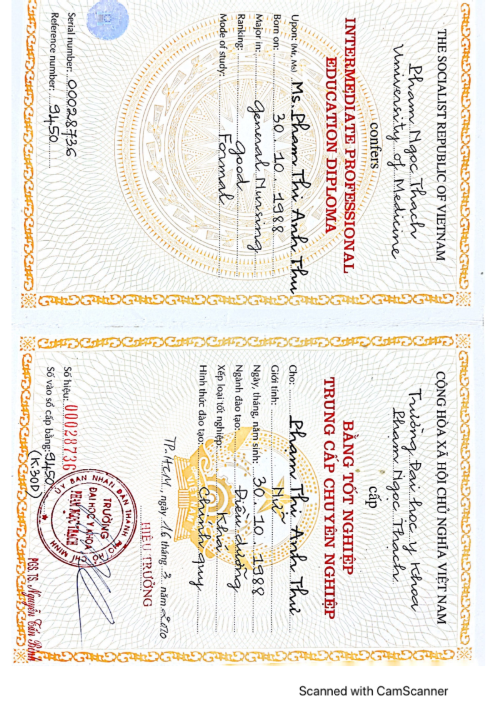 THE SOCIALIST REPUBLIC OF VIETNAM
Pham Ngoc Thach
University of Medicine
confers
INTERMEDIATE PROFESSIONAL
EDUCATION DIPLOMA
Upon: (Mr, Ms) Ms. Pham Thi Anh Thu
Born on: 30 . 10 . 1988
Major in: General Nursing
Ranking: good
Mode of study: Formal
Serial number: 00028736
Reference number: 9450
CỘNG HÒA XÃ HỘI CHỦ NGHĨA VIỆT NAM
Trường Đại học y Khoa
Phạm Ngọc Thạch
cấp
BẰNG TỐT NGHIỆP
TRUNG CẤP CHUYÊN NGHIỆP
Cho: Phạm Thị Anh Thư
Giới tính: Nữ
Ngày, tháng, năm sinh: 30 . 10 . 1988
Ngành đào tạo: Điều dưỡng
Xếp loại tốt nghiệp: Khá
Hình thức đào tạo: Chính quy
TP.HCM, ngày 16 tháng 3 năm 2010
HIỆU TRƯỞNG
Số hiệu: 00028736
Số vào sổ cấp bằng: 9450
(K30D)
ỦY BAN NHÂN DÂN THÀNH PHỐ HỒ CHÍ MINH
TRƯỜNG
ĐẠI HỌC Y KHOA
PHẠM NGỌC THẠCH
PGS. TS. Nguyễn Tấn Bỉnh
Scanned with CamScanner